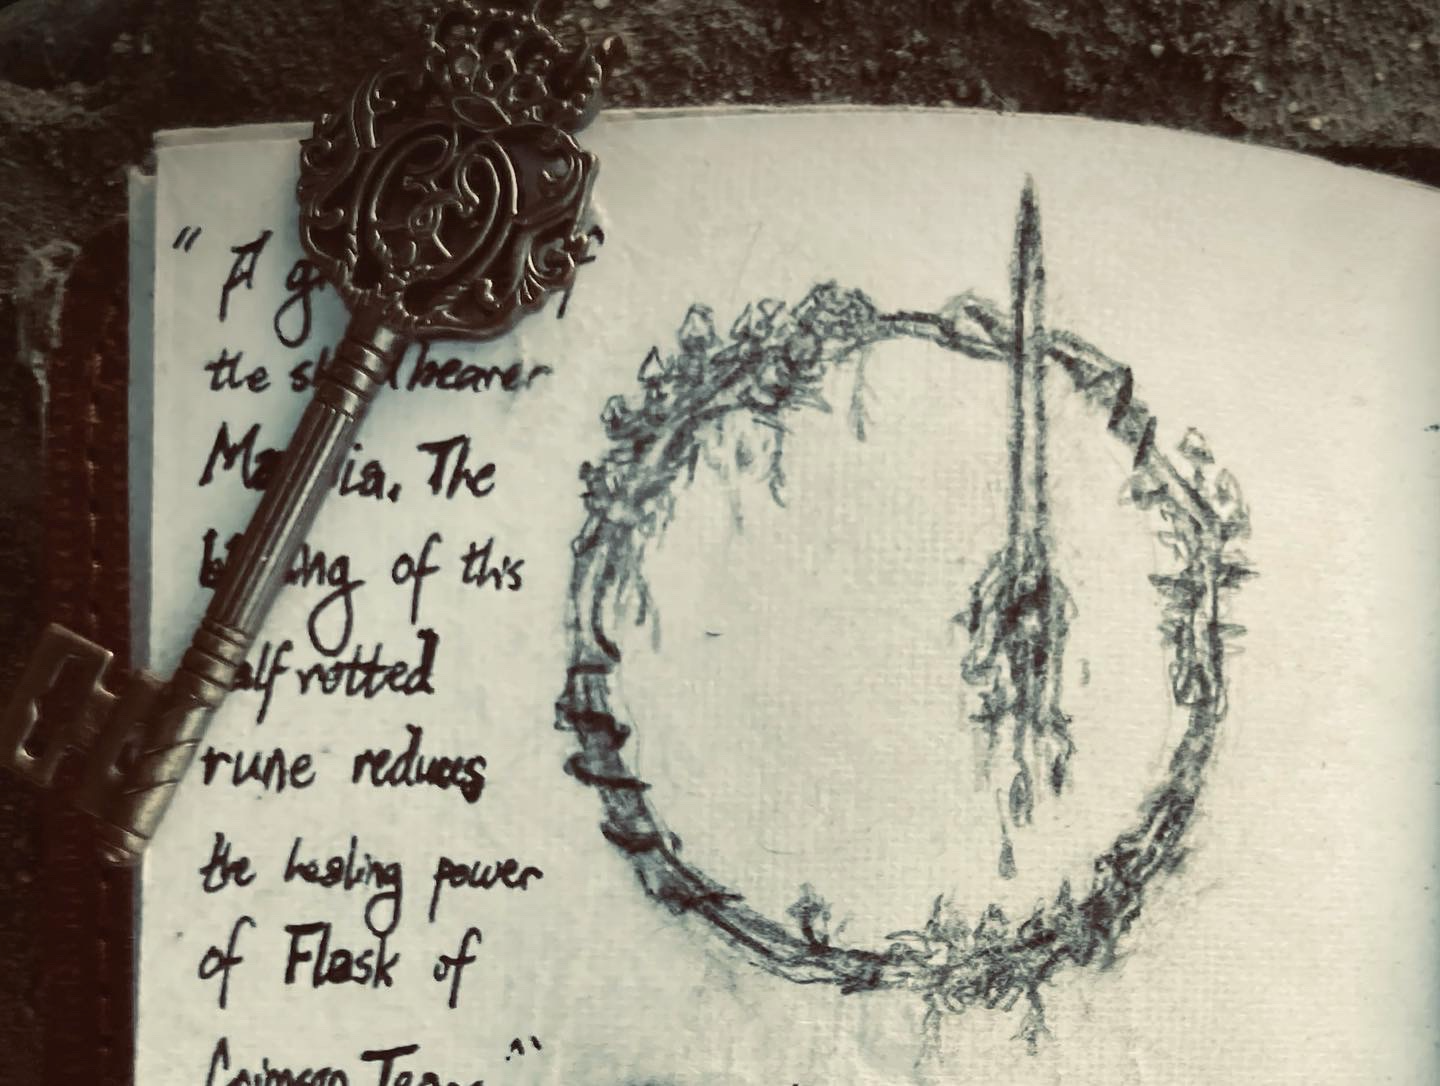 " A
the bearer
The
of this
rotted
rune reduces
the healing power
of Flask of
Crimson Tears."